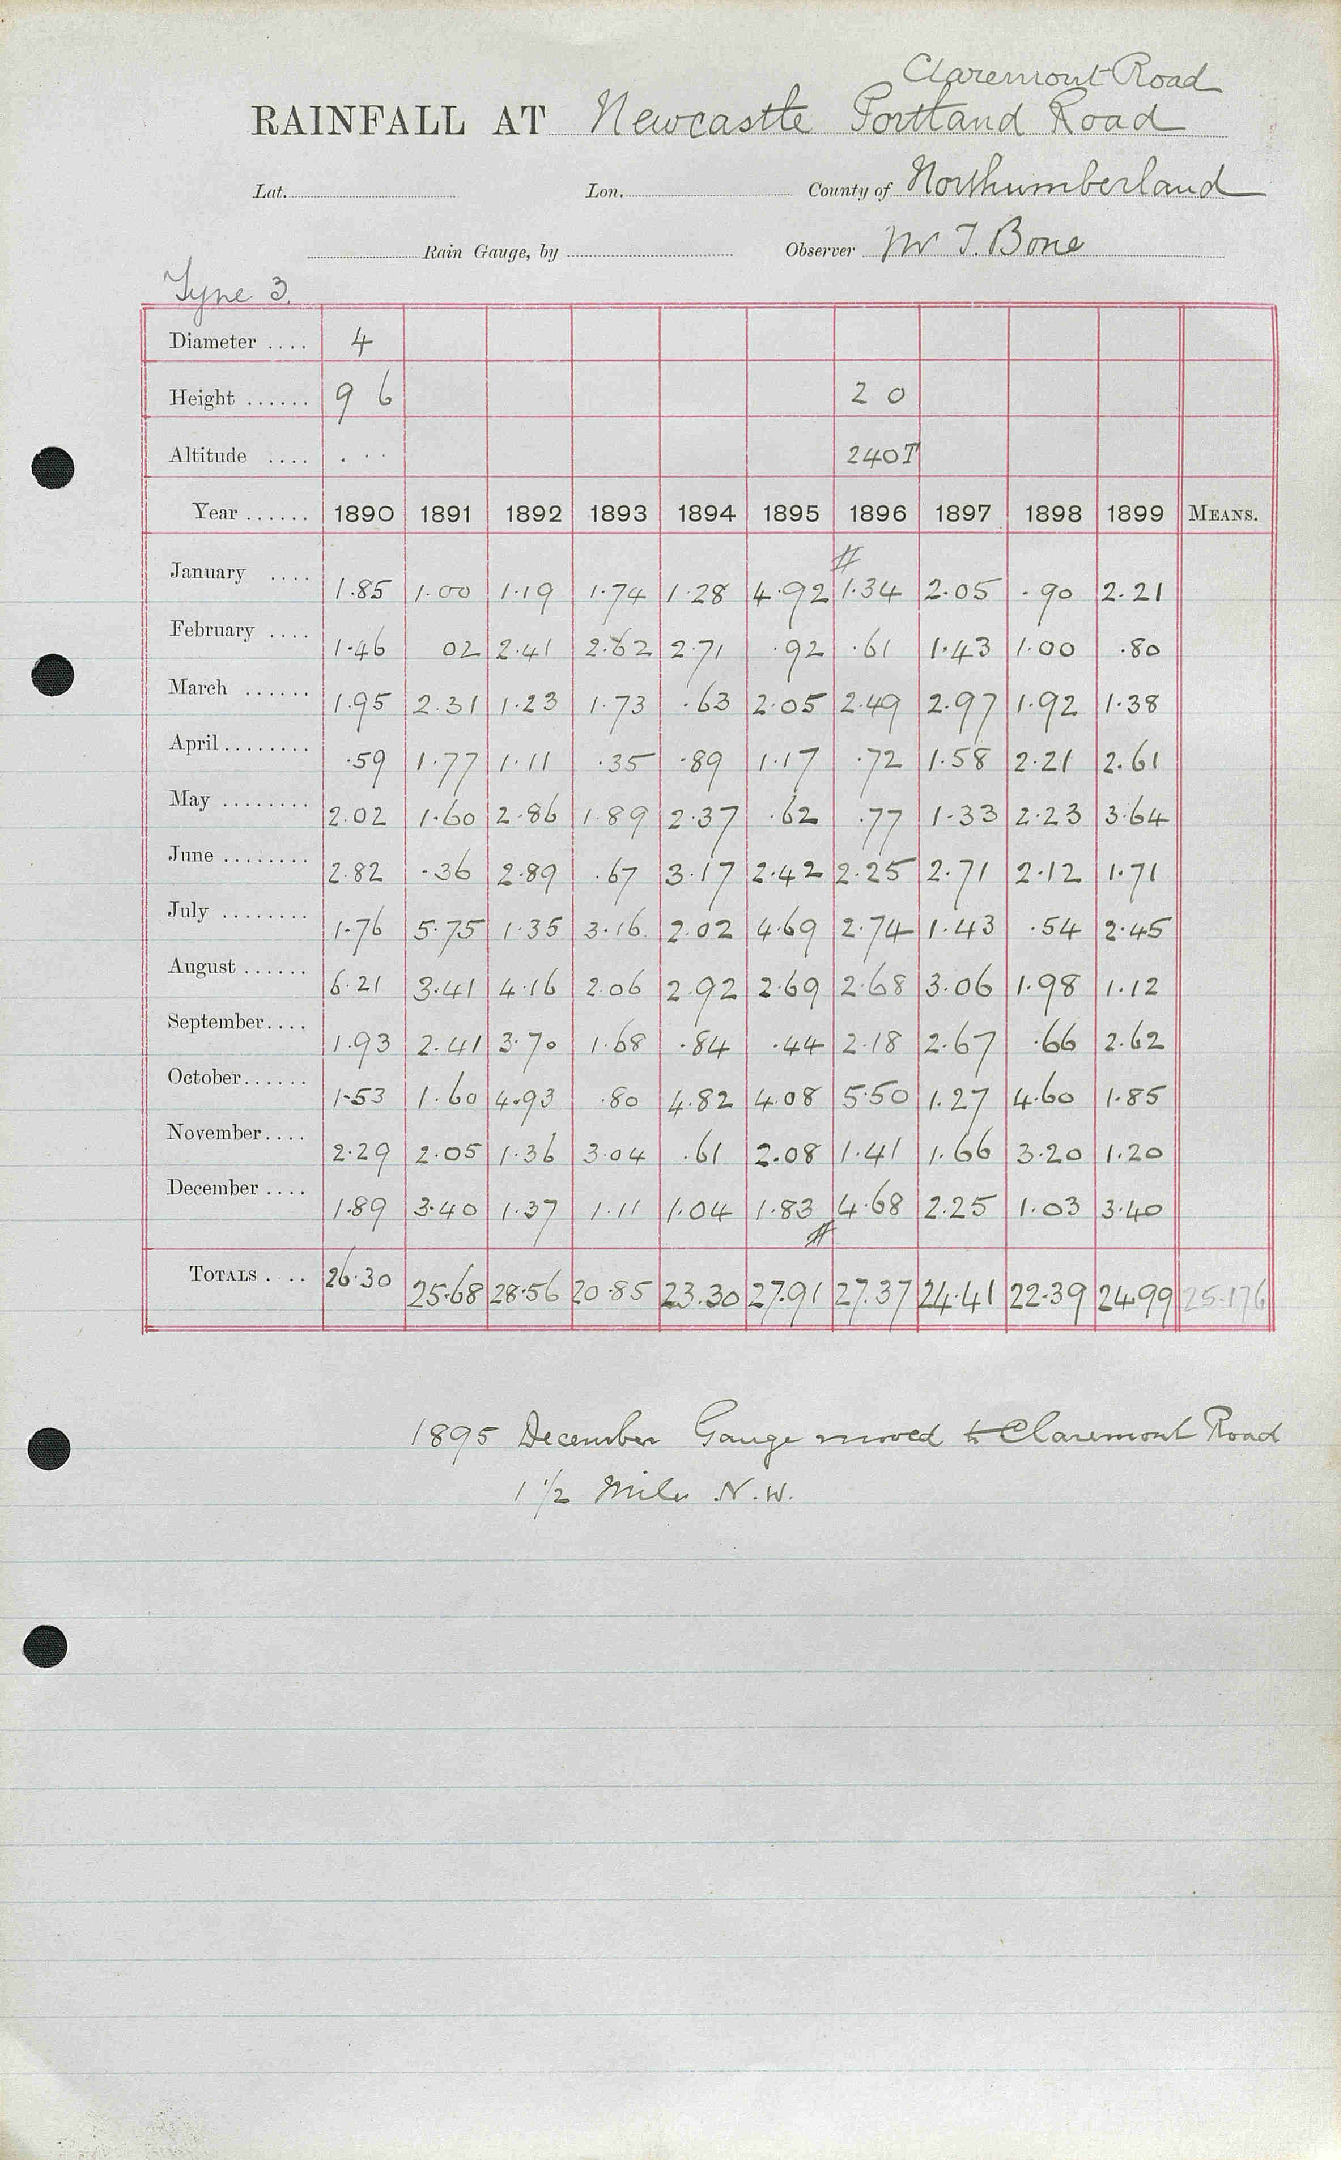 Claremont Road
RAINFALL AT Newcastle Portland Road
Lat. Lon. County of Northumberland
Rain Gauge, by Observer Mr T. Bone
Tyne 3.
Diameter .... 4
Height ...... 9 6 2 0
Altitude .... . . . 240T
Year ...... 1890 1891 1892 1893 1894 1895 1896 1897 1898 1899 MEANS.
#
January .... 1.85 1.00 1.19 1.74 1.28 4.92 1.34 2.05 .90 2.21
February .... 1.46 02 2.41 2.62 2.71 .92 .61 1.43 1.00 .80
March ...... 1.95 2.31 1.23 1.73 .63 2.05 2.49 2.97 1.92 1.38
April ........ .59 1.77 1.11 .35 .89 1.17 .72 1.58 2.21 2.61
May ........ 2.02 1.60 2.86 1.89 2.37 .62 .77 1.33 2.23 3.64
June ........ 2.82 .36 2.89 .67 3.17 2.42 2.25 2.71 2.12 1.71
July ........ 1.76 5.75 1.35 3.16 2.02 4.69 2.74 1.43 .54 2.45
August ...... 6.21 3.41 4.16 2.06 2.92 2.69 2.68 3.06 1.98 1.12
September .... 1.93 2.41 3.70 1.68 .84 .44 2.18 2.67 .66 2.62
October ...... 1.53 1.60 4.93 .80 4.82 4.08 5.50 1.27 4.60 1.85
November .... 2.29 2.05 1.36 3.04 .61 2.08 1.41 1.66 3.20 1.20
December .... 1.89 3.40 1.37 1.11 1.04 1.83 4.68 2.25 1.03 3.40
#
TOTALS . .. 26.30 25.68 28.56 20.85 23.30 27.91 27.37 24.41 22.39 24.99 25.176
1895 December Gauge moved to Claremont Road
1 1/2 Mile N.W.